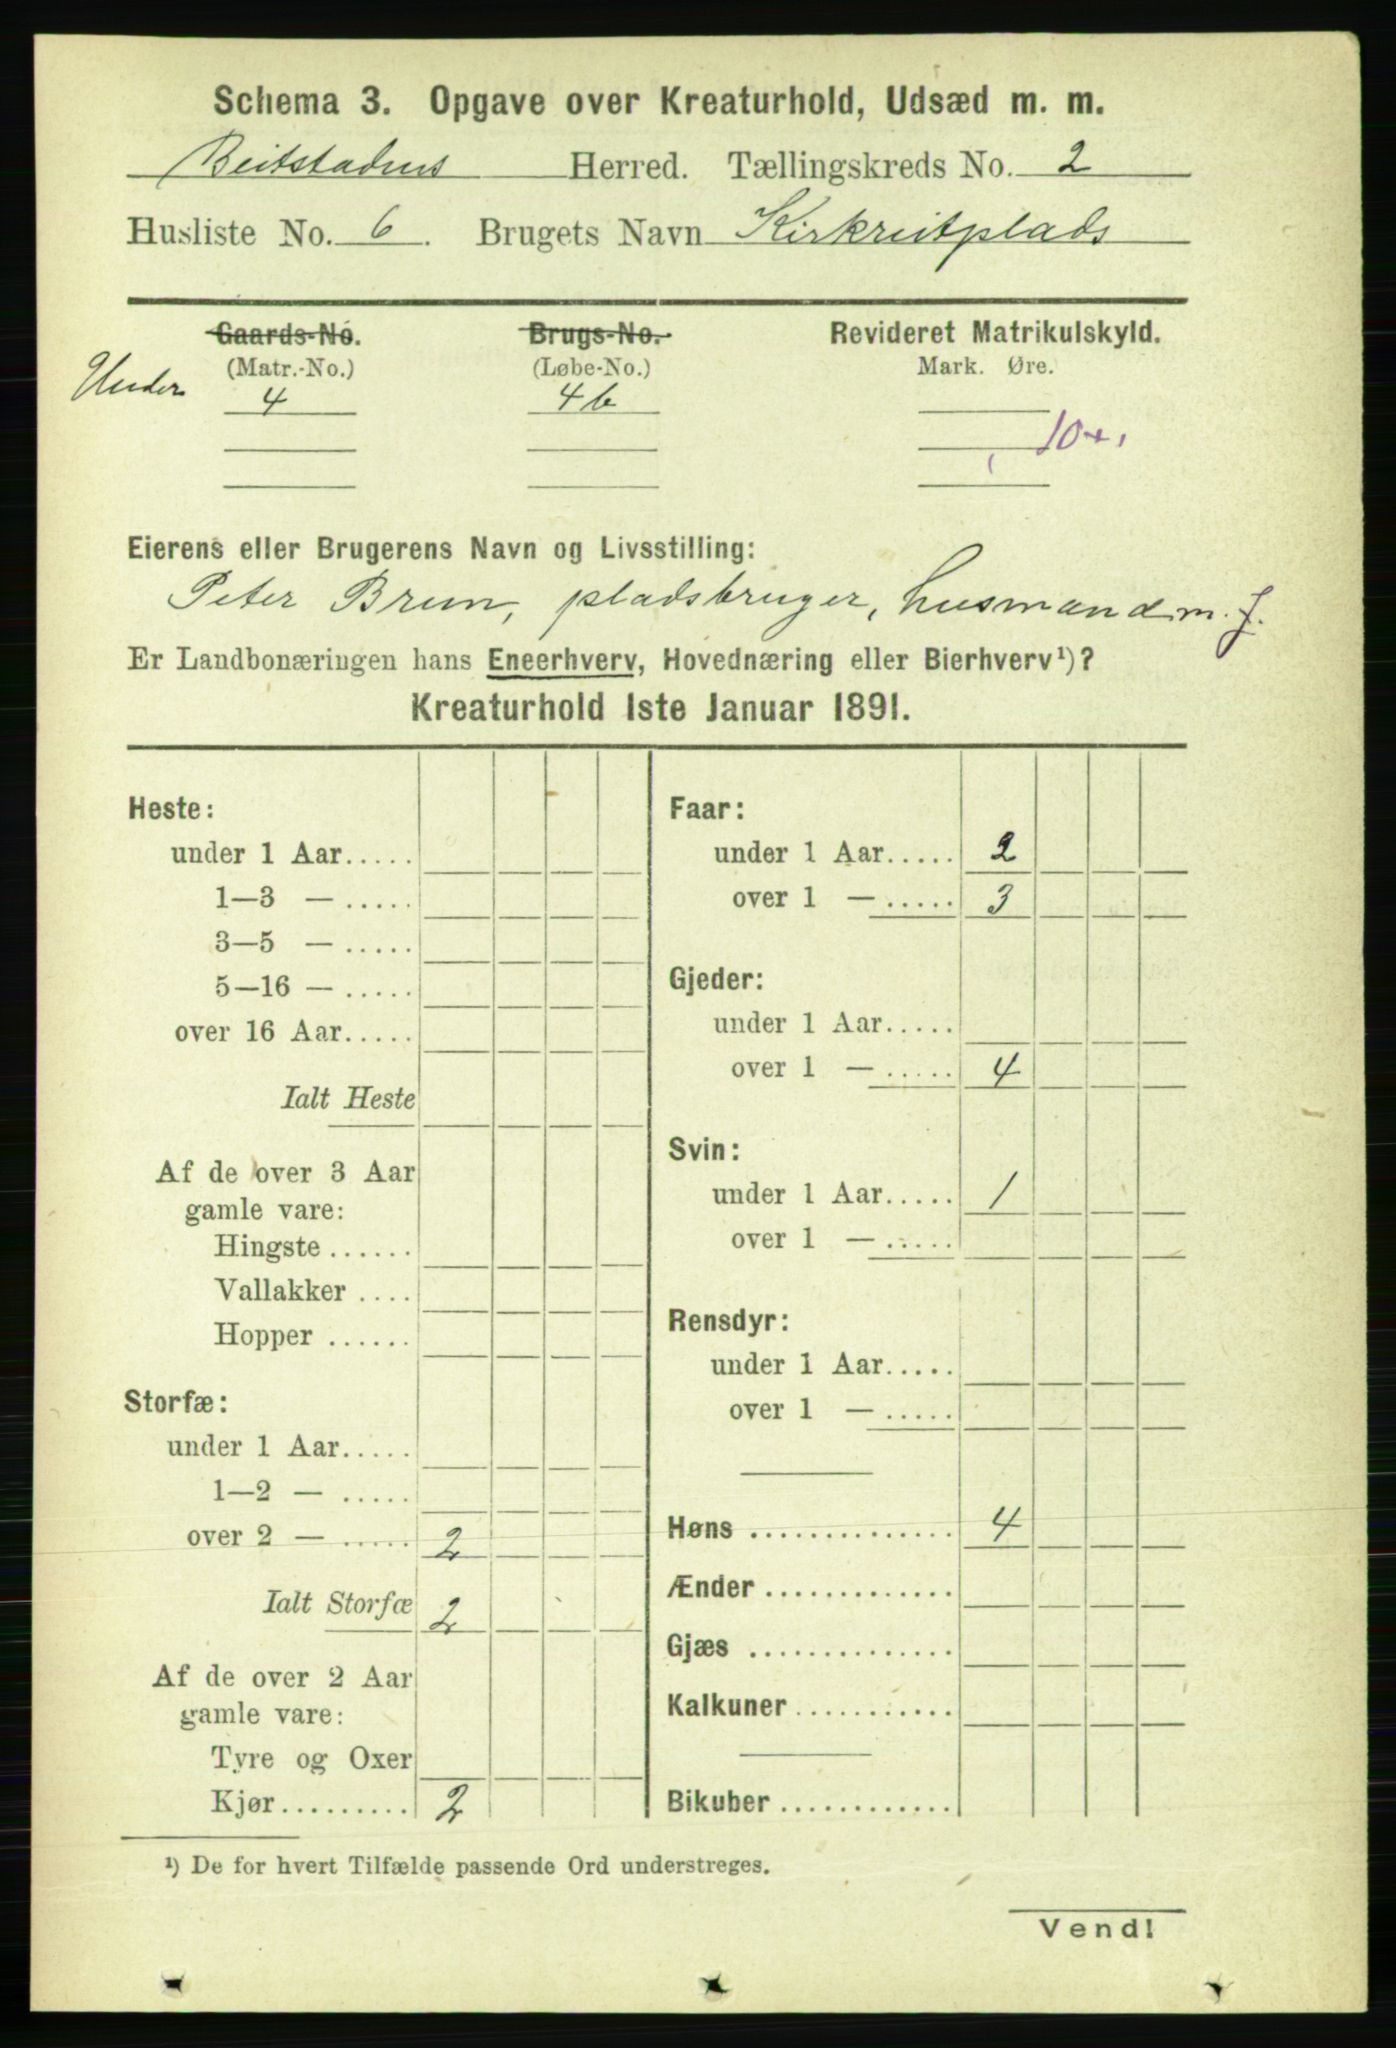 Schema 3. Opgave over Kreaturhold, Udsæd m. m.
Beitstadens Herred. Tællingskreds No. 2
Husliste No. 6. Brugets Navn Kirkreitplads
Gaards-No. Brugs-No. Revideret Matrikulskyld.
(Matr.-No.) (Løbe-No.) Mark. Øre.
Under 4 4b
Eierens eller Brugerens Navn og Livsstilling:
Peter Brun, pladsbruger, husmand m. j.
Er Landbonæringen hans Eneerhverv, Hovednæring eller Bierhverv¹)?
Kreaturhold 1ste Januar 1891.
Heste:
under 1 Aar.....
1—3 — .....
3—5 — .....
5—16 — .....
over 16 Aar.....
Ialt Heste
Af de over 3 Aar
gamle vare:
Hingste ......
Vallakker ....
Hopper ......
Storfæ:
under 1 Aar.....
1—2 — .....
over 2 — ..... 2
Ialt Storfæ 2
Af de over 2 Aar
gamle vare:
Tyre og Oxer
Kjør......... 2
Faar:
under 1 Aar..... 2
over 1 — ..... 3
Gjeder:
under 1 Aar.....
over 1 — ..... 4
Svin:
under 1 Aar..... 1
over 1 — .....
Rensdyr:
under 1 Aar.....
over 1 — .....
Høns .............. 4
Ænder .............
Gjæs ..............
Kalkuner ...........
Bikuber ............
¹) De for hvert Tilfælde passende Ord understreges.
Vend!